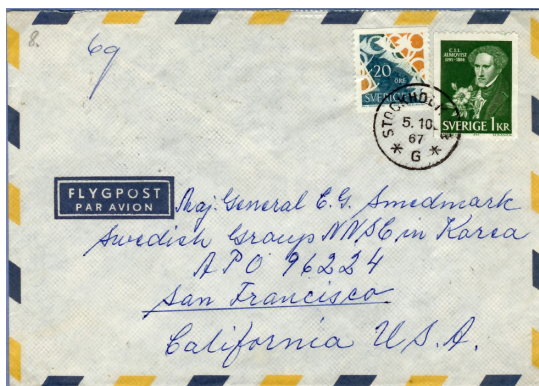 8.
6g
20
ÖRE
SVERIGE
C.J.L.
ALMQVIST
1793-1866
SVERIGE 1 KR
STOCKHOLM
5.10.
67
* G *
FLYGPOST
PAR AVION
Maj. General E.G. Smedmark
Swedish Group NNSC in Korea
APO 96224
San Francisco
California U.S.A.